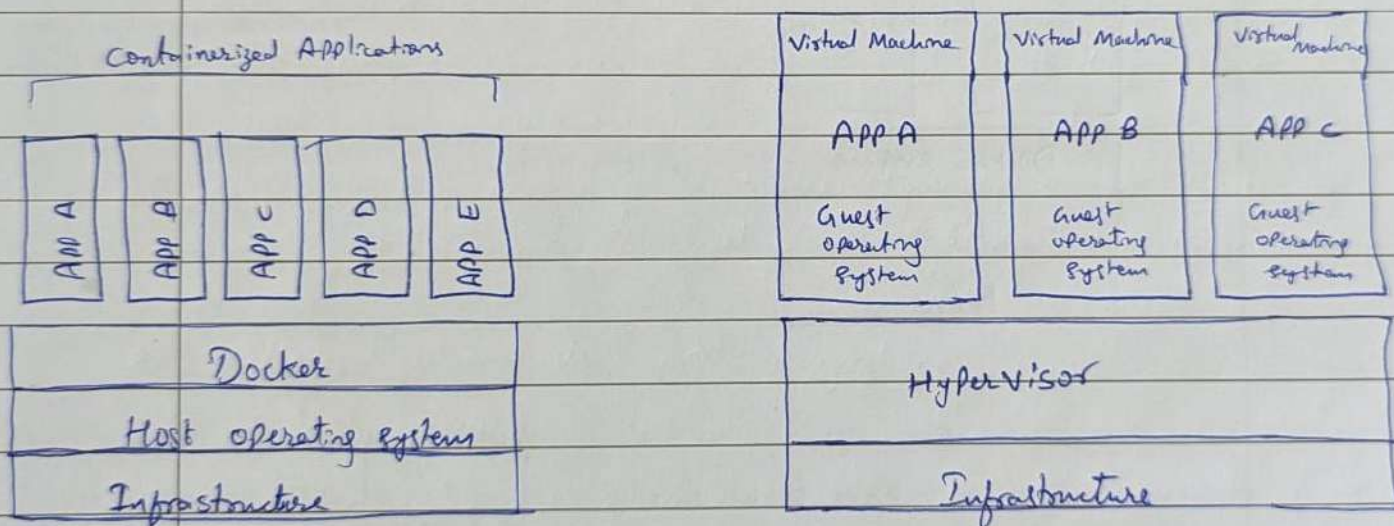 Containerized Applications
APP A
APP B
APP C
APP D
APP E
Docker
Host operating system
Infrastructure
Virtual Machine
APP A
Guest
operating
system
Virtual Machine
APP B
Guest
operating
system
Virtual Machine
APP C
Guest
operating
system
Hypervisor
Infrastructure